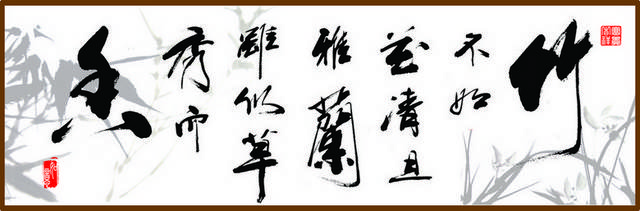 竹
不如
花清且
雅蘭
雖似草
秀而
香